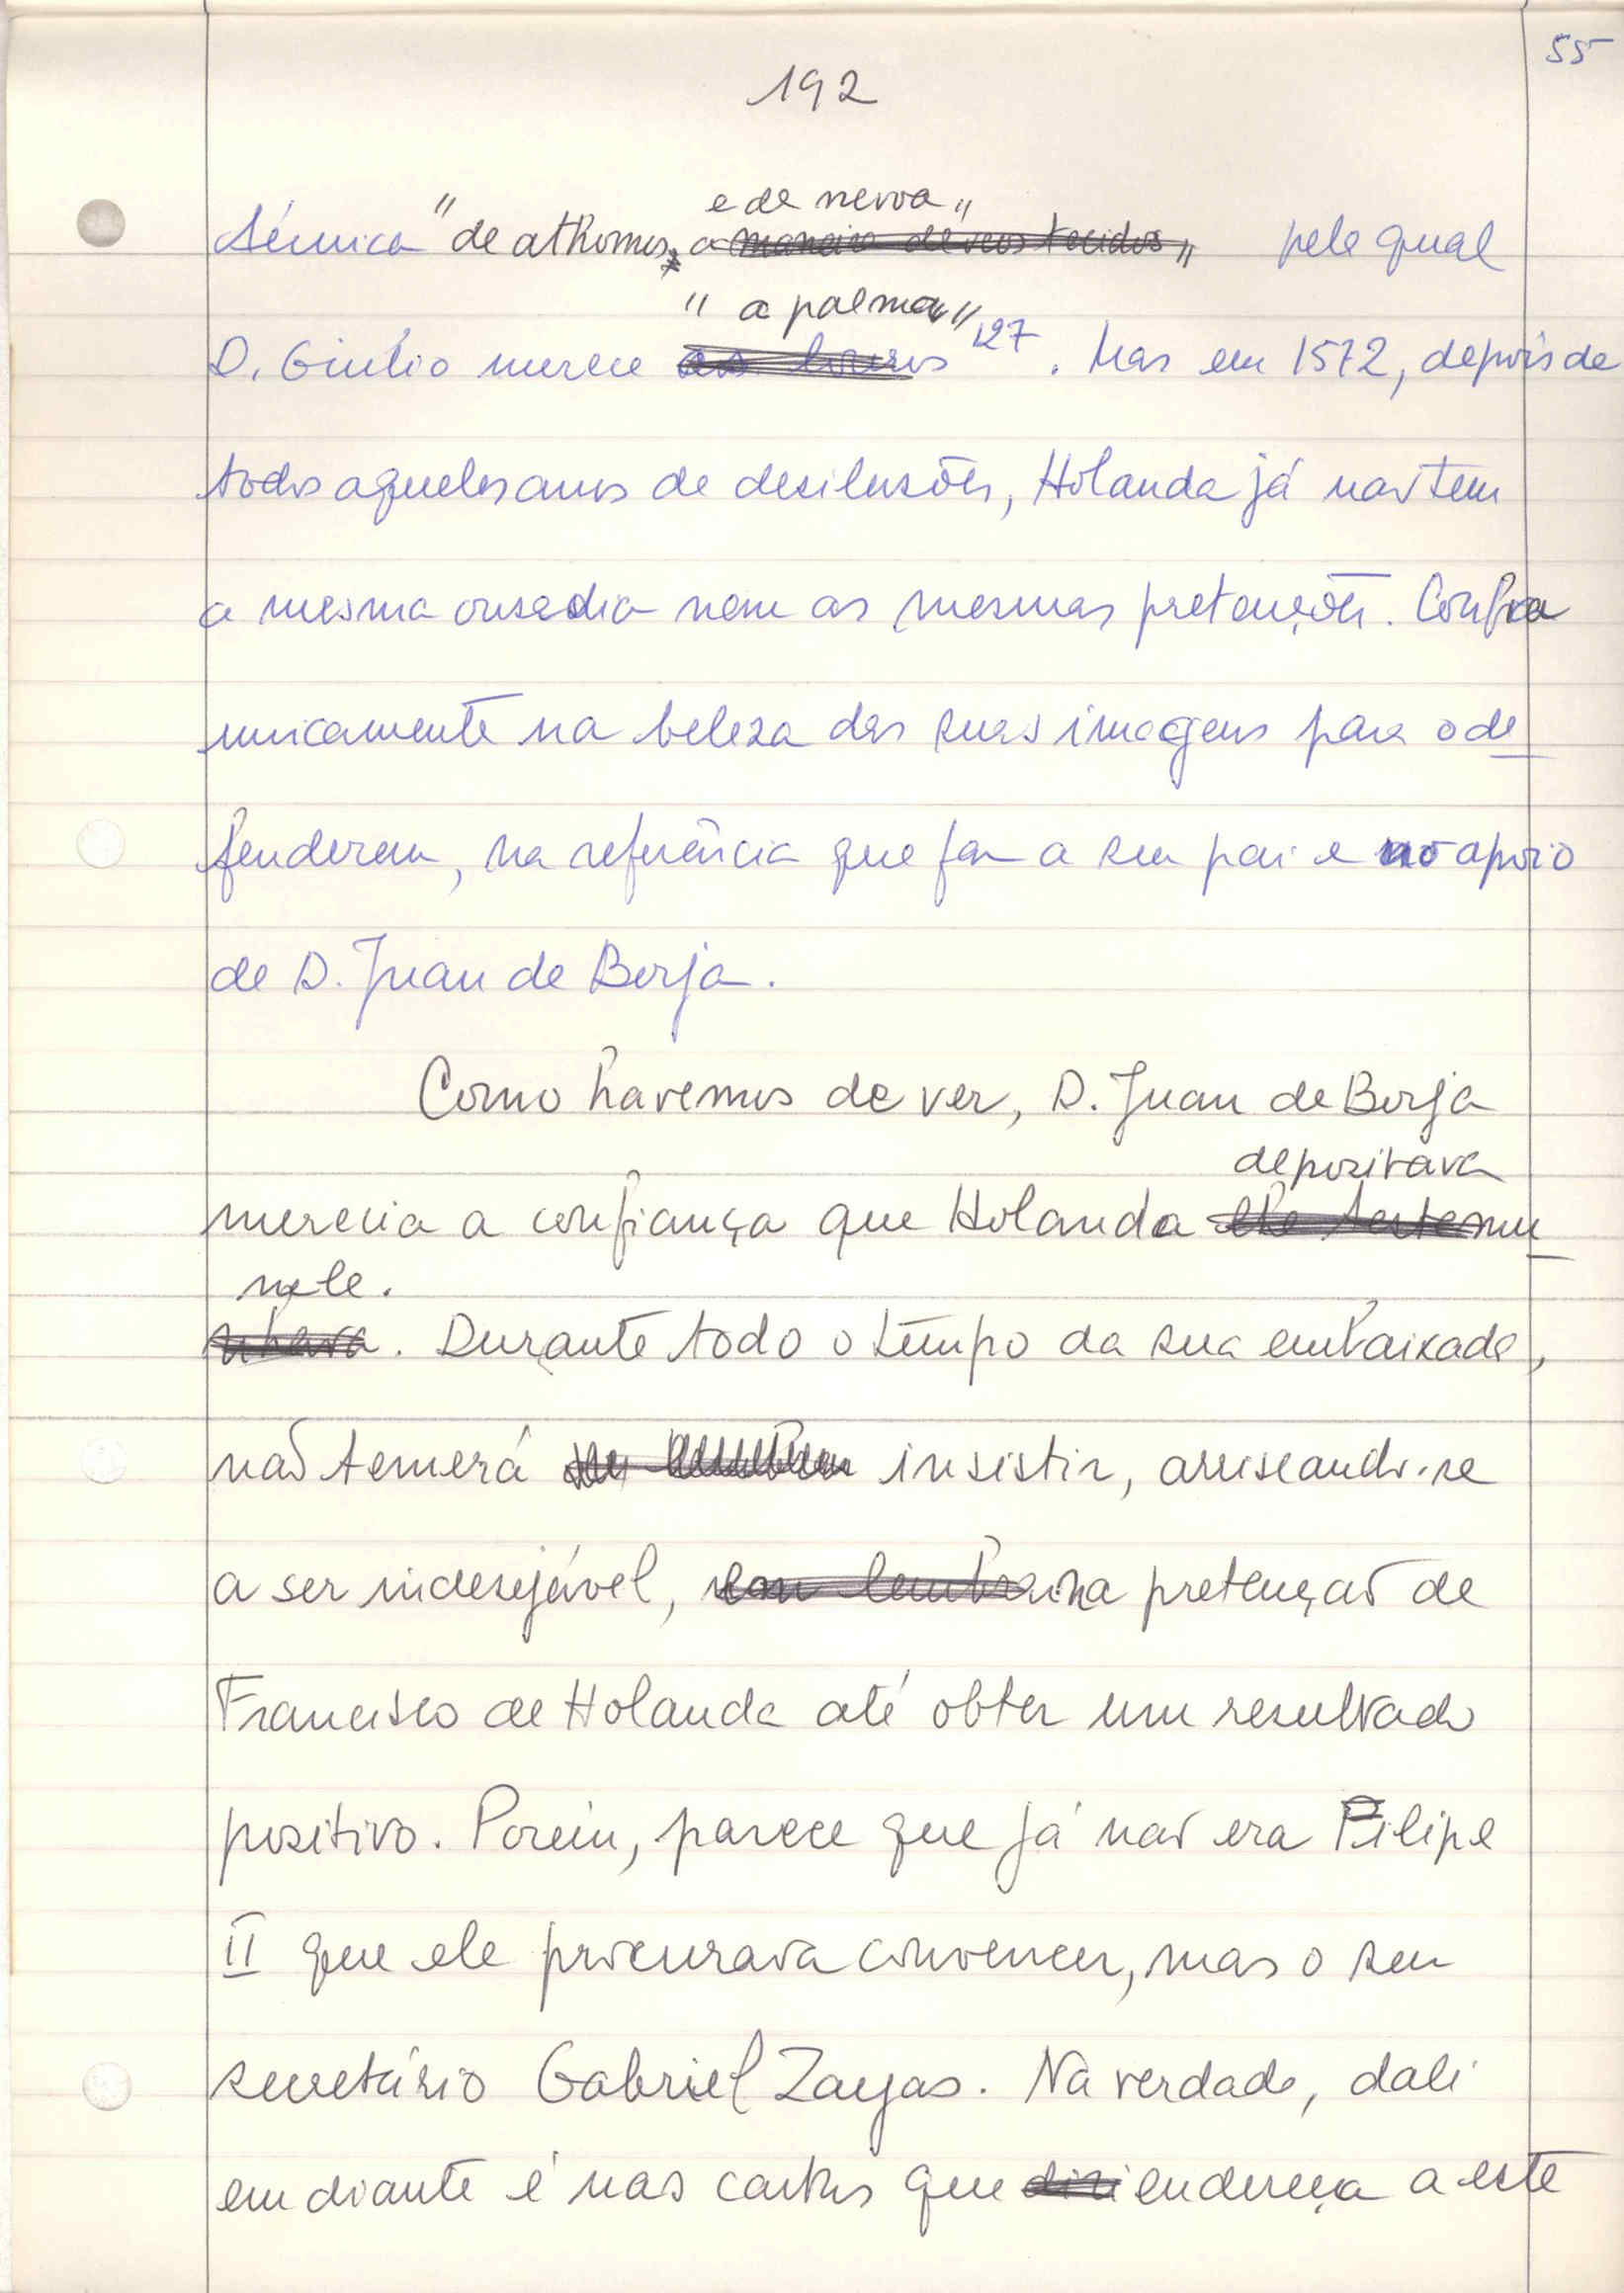 55
192
e de nevoa"
técnica "de athomos, a maneira de veos tecidos" pela qual
" a palma"
D. Giulio merece os louros 127. Mas em 1572, depois de
todos aqueles anos de desilusões, Holanda já não tem
a mesma ousadia nem as mesmas pretenções. Confia
unicamente na beleza das suas imagens para o de
fenderem, na referência que faz a seu pai e no apoio
de D. Juan de Borja.
Como havemos de ver, D. Juan de Borja
depositava
merecia a confiança que Holanda lhe testemu
nele.
nhava. Durante todo o tempo da sua embaixada,
não temerá insistir, arriscando-se
a ser indesejável, na pretenção de
Francisco de Holanda até obter um resultado
positivo. Porém, parece que já não era Filipe
II que ele procurava convencer, mas o seu
secretário Gabriel Zayas. Na verdade, dali
em diante é nas cartas que diri endereça a este